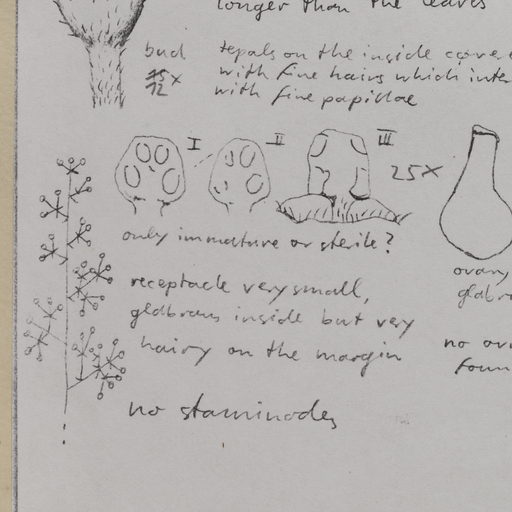 longer than the leaves
bud tepals on the inside cove
12 x with fine hairs which inte
with fine papillae
I II III
25x
only immature or sterile?
ovary
receptacle very small, glabr
glabrous inside but very
hairy on the margin no ov
foun
no staminodes